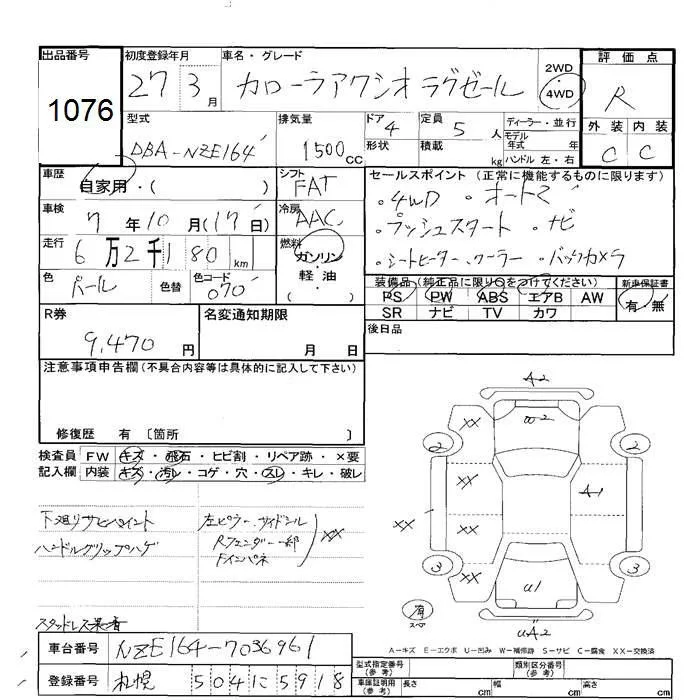 出品番号
1076
初度登録年月
27 3 月
車名・グレード
カローラアクシオ ラグゼール
2WD
・
4WD
評価点
R
外装 内装
C C
型式
DBA-NZE164
排気量
1500 CC
ドア 4
形状
定員 5 人
積載 kg
ディーラー・並行
モデル
年式 年
ハンドル 左・右
車歴
自家用・( )
シフト
FAT
車検
7 年 10 月 (17 日)
冷房
AAC
走行
6 万 2 千 1 80 km
燃料
ガソリン
・
軽・油
( )
色
パール
色替
色コード
070
セールスポイント (正常に機能するものに限ります)
・4WD ・オートマ
・プッシュスタート ・ナビ
・シートヒーター ・クーラー ・バックカメラ
装備品 (純正品に限り○をつけてください)
PS PW ABS エアB AW
SR ナビ TV カワ
新車保証書
有 ・ 無
後日品
R券
9,470 円
名変通知期限
月 日
注意事項申告欄 (不具合内容等は具体的に記入して下さい)
修復歴 有 〔箇所 〕
検査員 FW キズ・飛石・ヒビ割・リペア跡・×要
記入欄 内装 キズ・汚レ・コゲ・穴・スレ・キレ・破レ
下廻りサビペイント
ハンドルグリップハゲ
左ピラー、サイドシル
Rフェンダー一部
Fインパネ
XX
スタッドレス装着
A2
W2
2 2
XX
A1
XX XX
3 3
XX
U1
UA2
有
スペア
A－キズ E－エクボ U－凹み W－補修跡 S－サビ C－腐食 XX－交換済
車台番号
NZE164-7036961
登録番号
札幌 504 に 5918
型式指定番号
(参考)
類別区分番号
(参考)
車庫証明用
(参考)
長さ cm 幅 cm 高さ cm